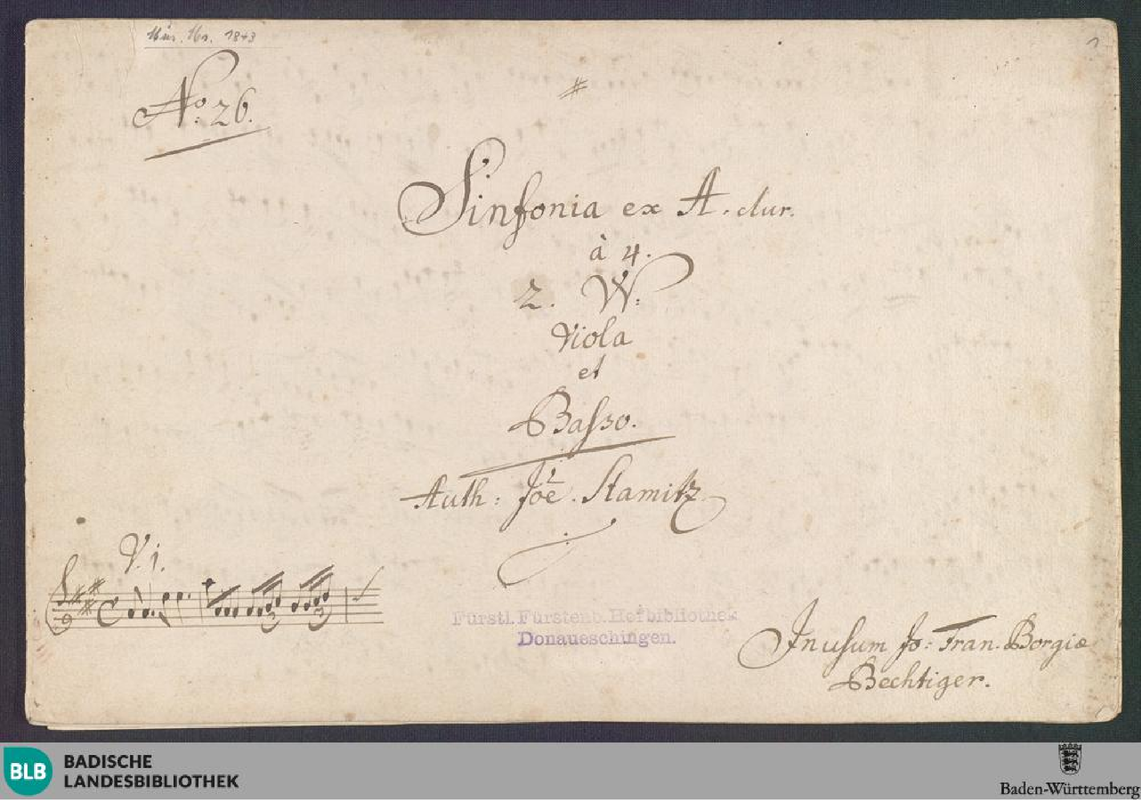 Mus. Hs. 1843
1
No. 26.
Sinfonia ex A. dur.
à 4.
2. VV:
Viola
et
Basso.
Auth: Joe. Stamitz
V. 1.
Fürstl. Fürstenb. Hofbibliothek
Donaueschingen.
In usum Jo: Fran. Borgiæ
Bechtiger.
BLB BADISCHE
LANDESBIBLIOTHEK
Baden-Württemberg